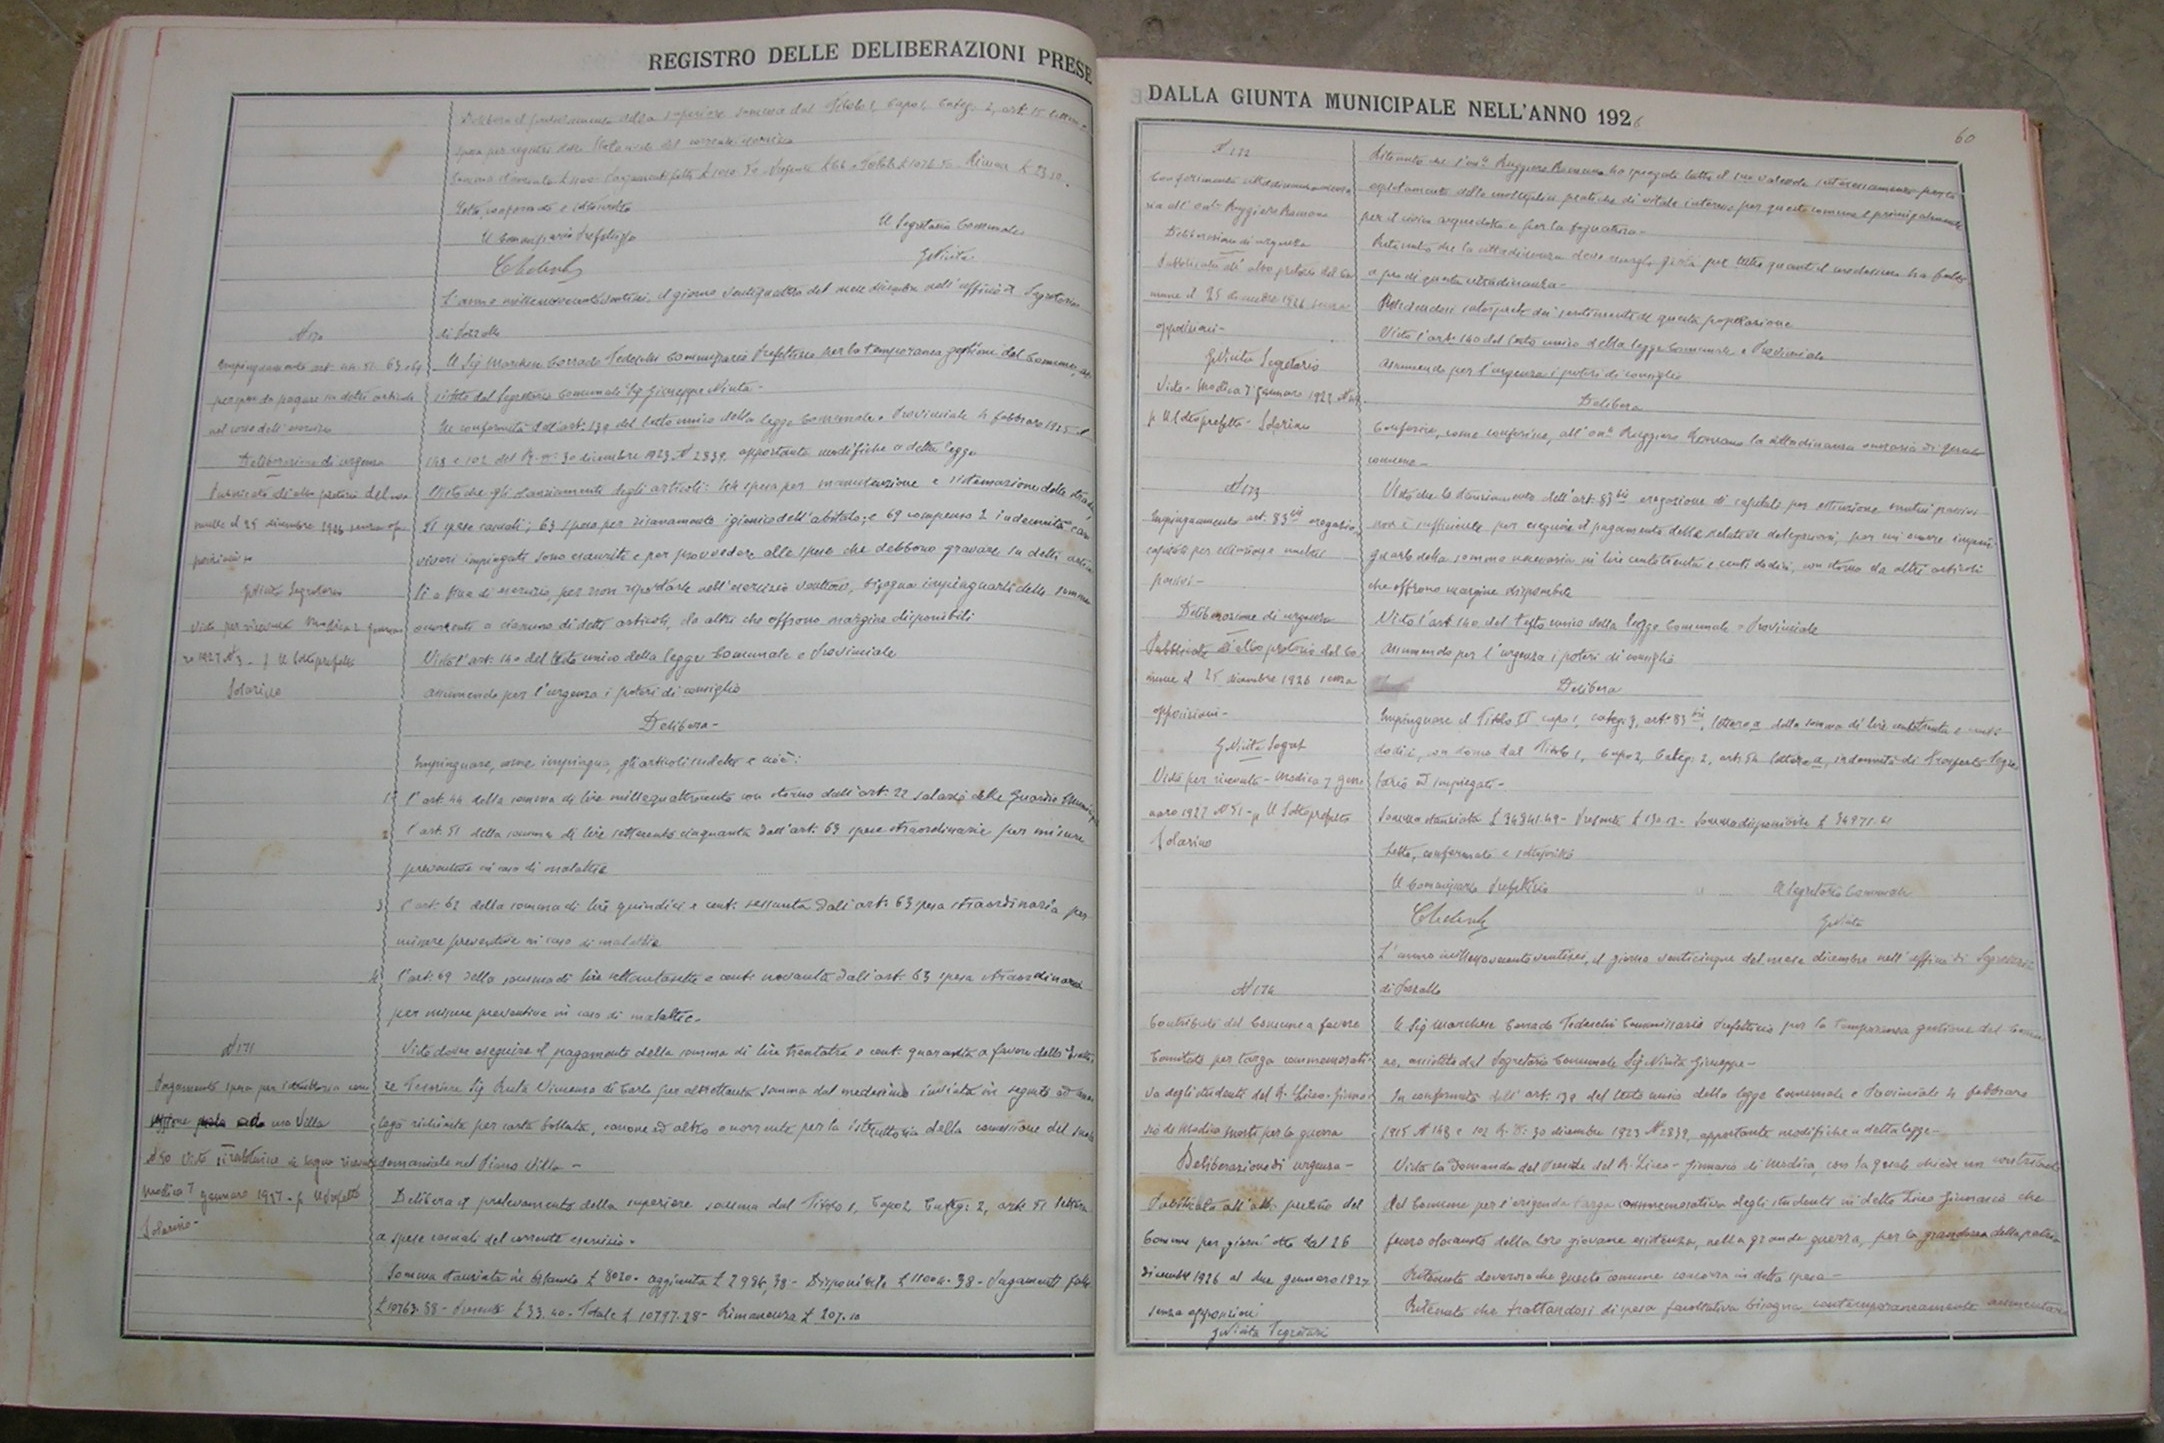 REGISTRO DELLE DELIBERAZIONI PRESE
Delibera il prelevamento della superiore somma dal Titolo I, Capo I, Categ. 2, art. 15
spesa per registri dello Stato civile del corrente esercizio
Letto, confermato e sottoscritto
Il Commissario Prefettizio
Il Segretario Comunale
GNivita
L'anno millenovecentoventisei, il giorno ventiquattro del mese dicembre nell'ufficio di Segreteria
N 170
di Pozzallo
Il Sig Marchese Corrado Tedeschi Commissario Prefettizio per la temporanea gestione del Comune, as-
sistito dal Segretario Comunale Sig Giuseppe Nivita-
In conformità dell'art. 139 del testo unico della legge Comunale e Provinciale 4 febbraio 1915 N
148 e 102 del R. D. 30 dicembre 1923 N 2839 apportante modifiche a detta legge
per quanto pagare su detti articoli
nel corso dell'esercizio
Deliberazione di urgenza
Pubblicata all'albo pretorio del Co-
mune il 25 dicembre 1926 senza op-
posizioni
GNivita Segretario
Visto per ricevuta Modica 7 genna-
io 1927 N 3 - p Il Sottoprefetto
Solarino
Visto che gli stanziamenti degli articoli: 44 spesa per manutenzione e sistemazione delle strade
51 spese casuali; 63 spesa per risanamento igienico dell'abitato; e 69 compenso e indennità caro
viveri impiegati sono esauriti e per provvedere alle spese che debbono gravare su detti artico-
li a fine di esercizio, per non riportarle nell'esercizio venturo, bisogna impinguarli delle somme
occorrenti a ciascuno di detti articoli, da altri che offrono margine disponibili
Visto l'art. 140 del testo unico della legge Comunale e Provinciale
assumendo per l'urgenza i poteri di consiglio
Delibera-
Impinguare, come impingua, gli articoli suddetti e cioè:
1 l'art. 44 della somma di lire millequattrocento con storno dall'art. 22 salario delle Guardie Municip
2 l'art. 51 della somma di lire settecentocinquanta dall'art. 63 spese straordinarie per misure
preventive in caso di malattie
3 l'art. 62 della somma di lire quindici e cent. sessanta dall'art. 63 spesa straordinaria per
misure preventive in caso di malattie
4 l'art. 69 della somma di lire settantasette e cent. novanta dall'art. 63 spesa straordinaria
per misure preventive in caso di malattie.
N 171
Pagamento spesa per istruttoria com-
missione uso Villa
Modica 7 gennaio 1927 - p Il Prefetto
Solarino-
Visto dover eseguire il pagamento della somma di lire trentatre e cent. quaranta a favore dello Esatto-
re Tesoriere Sig Ruta Vincenzo di Carlo per altrettanta somma dal medesimo inviata in seguito ad ana-
loga richiesta per carta bollata, canone ed altro occorrente per la istruttoria della concessione del suolo
demaniale nel Piano Villa -
Delibera il prelevamento della superiore somma dal Titolo 1, Capo 2, Categ. 2, art. 51 lettera
a spese casuali del corrente esercizio.
Somma stanziata in bilancio £ 8020 - aggiunta £ 2984,38 - Disponibile £ 11004.38 - Pagamenti fatti
£ 10763.88 - Presente £ 33.40 - Totale £ 10797.28 - Rimanenza £ 207.10
DALLA GIUNTA MUNICIPALE NELL'ANNO 1926
60
N 172
Conferimento cittadinanza onora-
ria all'on. Ruggiero Romano
Deliberazione di urgenza
Pubblicata all'albo pretorio del Co-
mune il 25 dicembre 1926 senza
opposizioni-
GNivita Segretario
Visto - Modica 7 gennaio 1927
p Il Sottoprefetto - Solarino
Ritenuto che l'on. Ruggiero Romano ha spiegato tutto il suo valevole interessamento per lo
espletamento delle molteplici pratiche di vitale interesse per questo comune e principalmente
per il civico acquedotto e per la fognatura-
Ritenuto che la cittadinanza deve essergli grata per tutto quanto il medesimo ha fatto
a pro di questa cittadinanza-
Rendendosi interprete dei sentimenti di questa popolazione
Visto l'art. 140 del testo unico della legge Comunale e Provinciale
assumendo per l'urgenza i poteri di consiglio
Delibera
Conferire, come conferisce, all'on. Ruggiero Romano la cittadinanza onoraria di questo
comune-
N 173
Impinguamento art. 83 bis erogazione
capitali per estinzione mutui
passivi-
Deliberazione di urgenza
Pubblicata all'albo pretorio del Co-
mune il 25 dicembre 1926 senza
opposizioni-
GNivita Segret
Visto per ricevuta - Modica 7 gen-
naio 1927 N 51 - p Il Sottoprefetto
Solarino
Visto che lo stanziamento dell'art. 83 bis erogazione di capitali per estinzione mutui passivi
non è sufficiente per eseguire il pagamento delle relative delegazioni, per cui occorre impin-
guarlo della somma necessaria in lire centotrenta e cent. dodici, con storno da altri articoli
che offrono margine disponibile
Visto l'art. 140 del testo unico della legge Comunale e Provinciale
assumendo per l'urgenza i poteri di consiglio
Delibera
Impinguare il Titolo II capo 1, categ. 3, art. 83 bis, lettera a della somma di lire centotrenta e cent.
dodici, con storno dal Titolo 1, Capo 2, Categ. 2, art. 54 lettera a, indennità di trasferta Segre-
tario ed impiegati-
Somma stanziata £ 34841.49 - Presente £ 130.12 - Somma disponibile £ 34971.61
Letto, confermato e sottoscritto
Il Commissario Prefettizio
Il Segretario Comunale
GNivita
L'anno millenovecentoventisei, il giorno venticinque del mese dicembre nell'ufficio di Segreteria
N 174
di Pozzallo
Contributo del Comune a favore
Comitato per targa commemorati-
va degli studenti del R. Liceo-ginna-
sio di Modica morti per la guerra
Deliberazione di urgenza-
Pubblicata all'albo pretorio del
Comune per giorni otto dal 26
dicembre 1926 al due gennaio 1927
senza opposizioni
GNivita Segretario
Il Sig Marchese Corrado Tedeschi Commissario Prefettizio per la temporanea gestione del Comu-
ne, assistito dal Segretario Comunale Sig. Nivita Giuseppe-
In conformità dell'art. 139 del testo unico della legge Comunale e Provinciale 4 febbraio
1915 N 148 e 102 R. D. 30 dicembre 1923 N 2839, apportante modifiche a detta legge-
Vista la domanda del Preside del R. Liceo-Ginnasio di Modica, con la quale chiede un contributo
del Comune per l'erigenda targa commemorativa degli studenti in detto Liceo Ginnasio che
fecero olocausto della loro giovane esistenza, nella grande guerra, per la grandezza della patria
Ritenuto doveroso che questo comune concorra in detta spesa-
Ritenuto che trattandosi di spesa facoltativa bisogna contemporaneamente aumentare